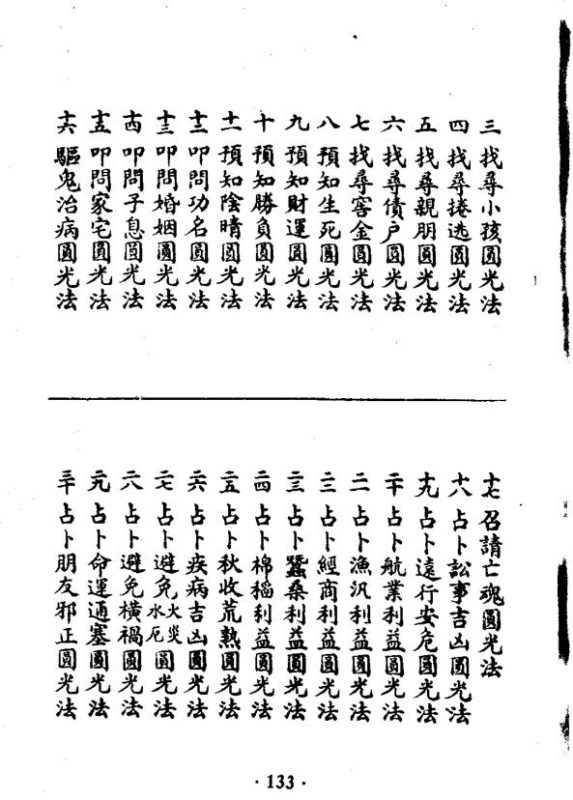 三 找尋小孩圓光法
四 找尋捲逃圓光法
五 找尋親朋圓光法
六 找尋債户圓光法
七 找尋窖金圓光法
八 預知生死圓光法
九 預知財運圓光法
十 預知勝負圓光法
十一 預知陰晴圓光法
十二 叩問功名圓光法
十三 叩問婚姻圓光法
十四 叩問子息圓光法
十五 叩問家宅圓光法
十六 驅鬼治病圓光法
十七 召請亡魂圓光法
十八 占卜訟事吉凶圓光法
十九 占卜遠行安危圓光法
二十 占卜航業利益圓光法
二一 占卜漁汎利益圓光法
二二 占卜經商利益圓光法
二三 占卜蠶桑利益圓光法
二四 占卜棉稻利益圓光法
二五 占卜秋收荒熟圓光法
二六 占卜疾病吉凶圓光法
二七 占卜避免火災水厄圓光法
二八 占卜避免橫禍圓光法
二九 占卜命運通塞圓光法
三十 占卜朋友邪正圓光法
·133·